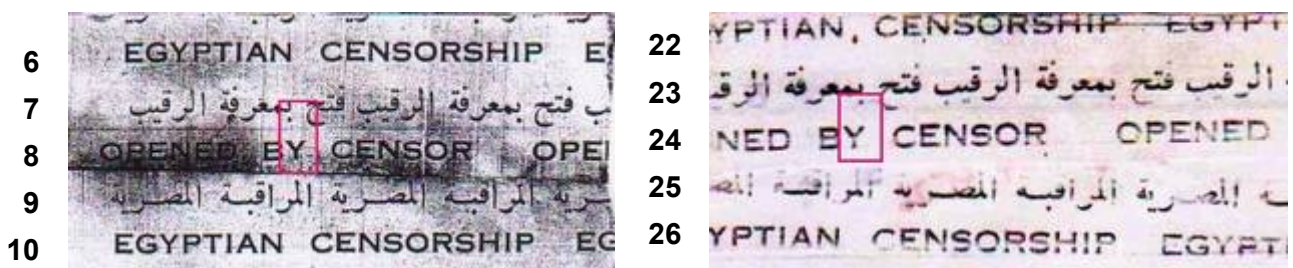 6 EGYPTIAN CENSORSHIP
7 فتح بمعرفة الرقيب فتح بمعرفة الرقيب
8 OPENED BY CENSOR OPE
9 المراقبة المصرية المراقبة المصرية
10 EGYPTIAN CENSORSHIP EG
22 YPTIAN, CENSORSHIP EGYPT
23 الرقيب فتح بمعرفة الرقيب فتح بمعرفة
24 NED BY CENSOR OPENED
25 المصرية المراقبة المصرية المراقبة
26 YPTIAN CENSORSHIP EGYPTI